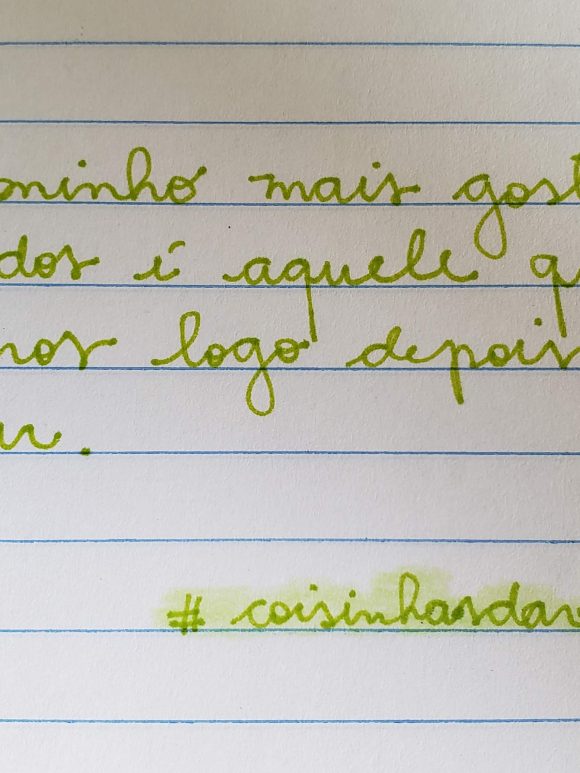 ninho mais gost
dos é aquele q
nos logo depois
u.
# coisinhasdav